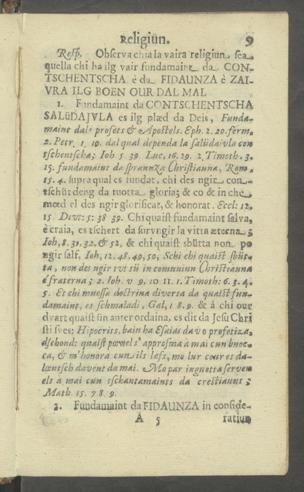 Religiun. 9
Resp. Observa chia la vaira religiun sea
quella chi ha ilg vair fundamaint da CON-
TSCHENTSCHA é da FIDAUNZA é ZAI-
VRA ILG BOEN OUR DAL MAL
1. Fundamaint da CONTSCHENTSCHA
SALÜDAJVLA es ilg plæd da Deis, Funda-
maint dals profets & Apostols. Eph. 2. 20. ferm.
2. Petr. 1. 19. dal qual dependa la salüdaivla con
tschentscha; Joh 5. 39. Luc. 16. 29. 2. Timoth. 3.
15. fundamaint da spraunza Christiauna, Rom.
15. 4. supra qual es fundat, chi des ngir con-
tschüt deng da tuotta gloria; & co & in che
moed el des ngir glorificat, & honorat. Eccl: 12.
15. Devt: 5: 38 39. Chi quaist fundamaint salva,
è craia, es tichert da survgir la vitta æterna;
Joh, 8. 31. 32. & 52, & chi quaist sbütta non po
ngir salf, Joh, 12. 48. 49. 50, Schi chi quaist sbüt-
ta, non des ngir tut sü in communiun Christianna
é fraterna; 2. Joh. v 9. 10. 11. 1. Timoth: 6. 3. 4.
5. Et chi muossa doctrina diversa da quaist fun-
damaint, es schmaladi, Gal, 1. 8. 9. & à chi our
dvart quaist sün auter ordaina, es dit da Jesu Chri
sti svei; Hipocrits, bain ha Esaias da vo profetiza,
dschond: quaist povel s'approsma à mai cun buoc-
ca, & m'honora cun ils lefs, mo lur cour es da-
loentsch davent da mai. Mo par ingnotta serven
els à mai cun tschantamaints da crestiauns;
Math. 15. 7. 8. 9.
2. Fundamaint da FIDAUNZA in conside-
A 5 ratiun